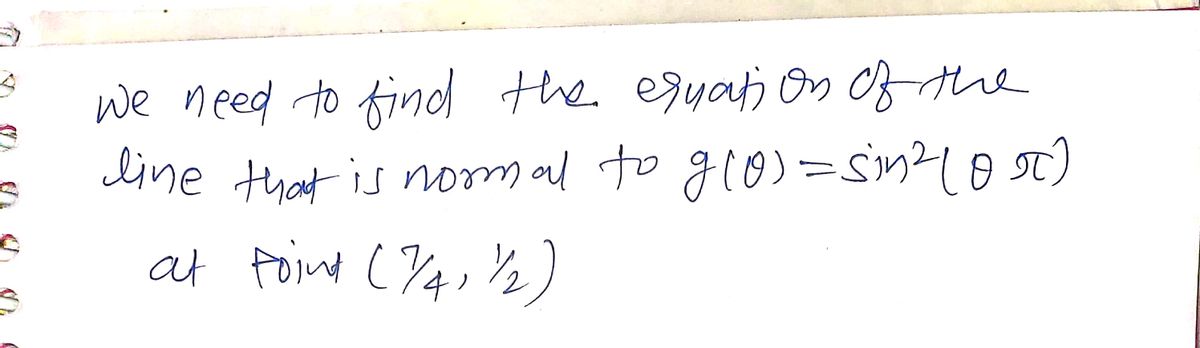 We need to find the equation of the
line that is normal to g(θ) = sin²(θ π)
at point (7/4, 1/2)